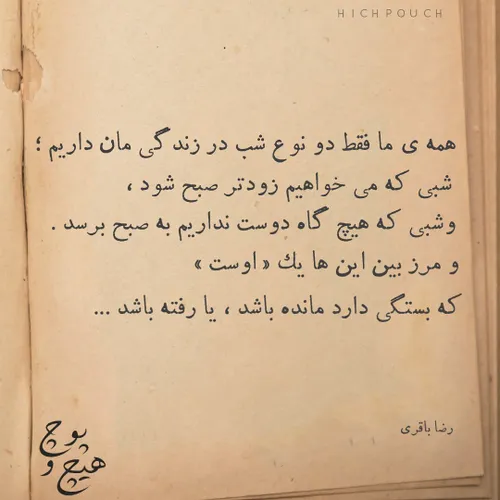 HICHPOUCH
همه ی ما فقط دو نوع شب در زندگی مان داریم ؛
شبی که می خواهیم زودتر صبح شود ،
وشبی که هیچ گاه دوست نداریم به صبح برسد .
و مرز بین این ها یك « اوست »
که بستگی دارد مانده باشد ، یا رفته باشد ...
رضا باقری
پوچ
هیچ و